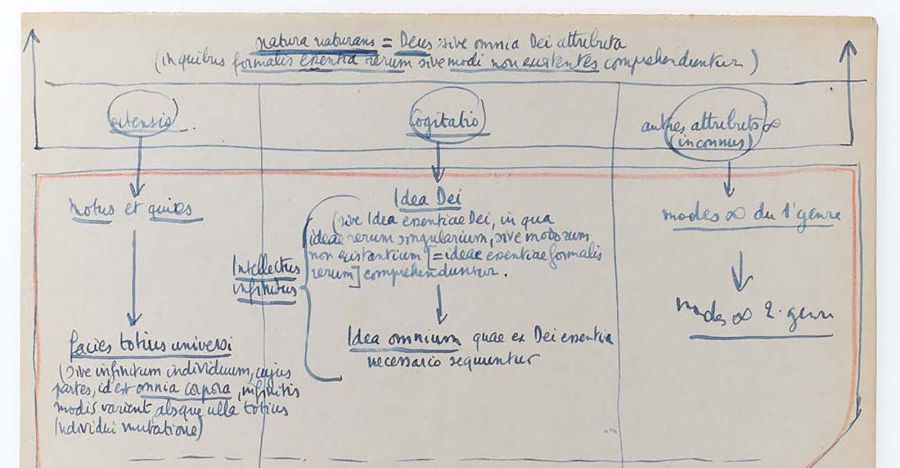 natura naturans = Deus sive omnia Dei attributa
(in quibus formalis essentia rerum sive modi non existentes comprehenduntur)
extensio
Cogitatio
autres attributs ∞
(inconnus)
Motus et quies
Idea Dei
(sive Idea essentiae Dei, in qua
ideae rerum singularium, sive modorum
non existantium [= ideae essentiae formalis
rerum] comprehenduntur.
modes ∞ du 1° genre
Intellectus
infinitus
modes ∞ 2. genre
facies totius universi
(sive infinitum individuum, cujus
partes, id est omnia corpora, infinitis
modis variant absque ulla totius
Individui mutatione)
Idea omnium quae ex Dei essentia
necessario sequuntur